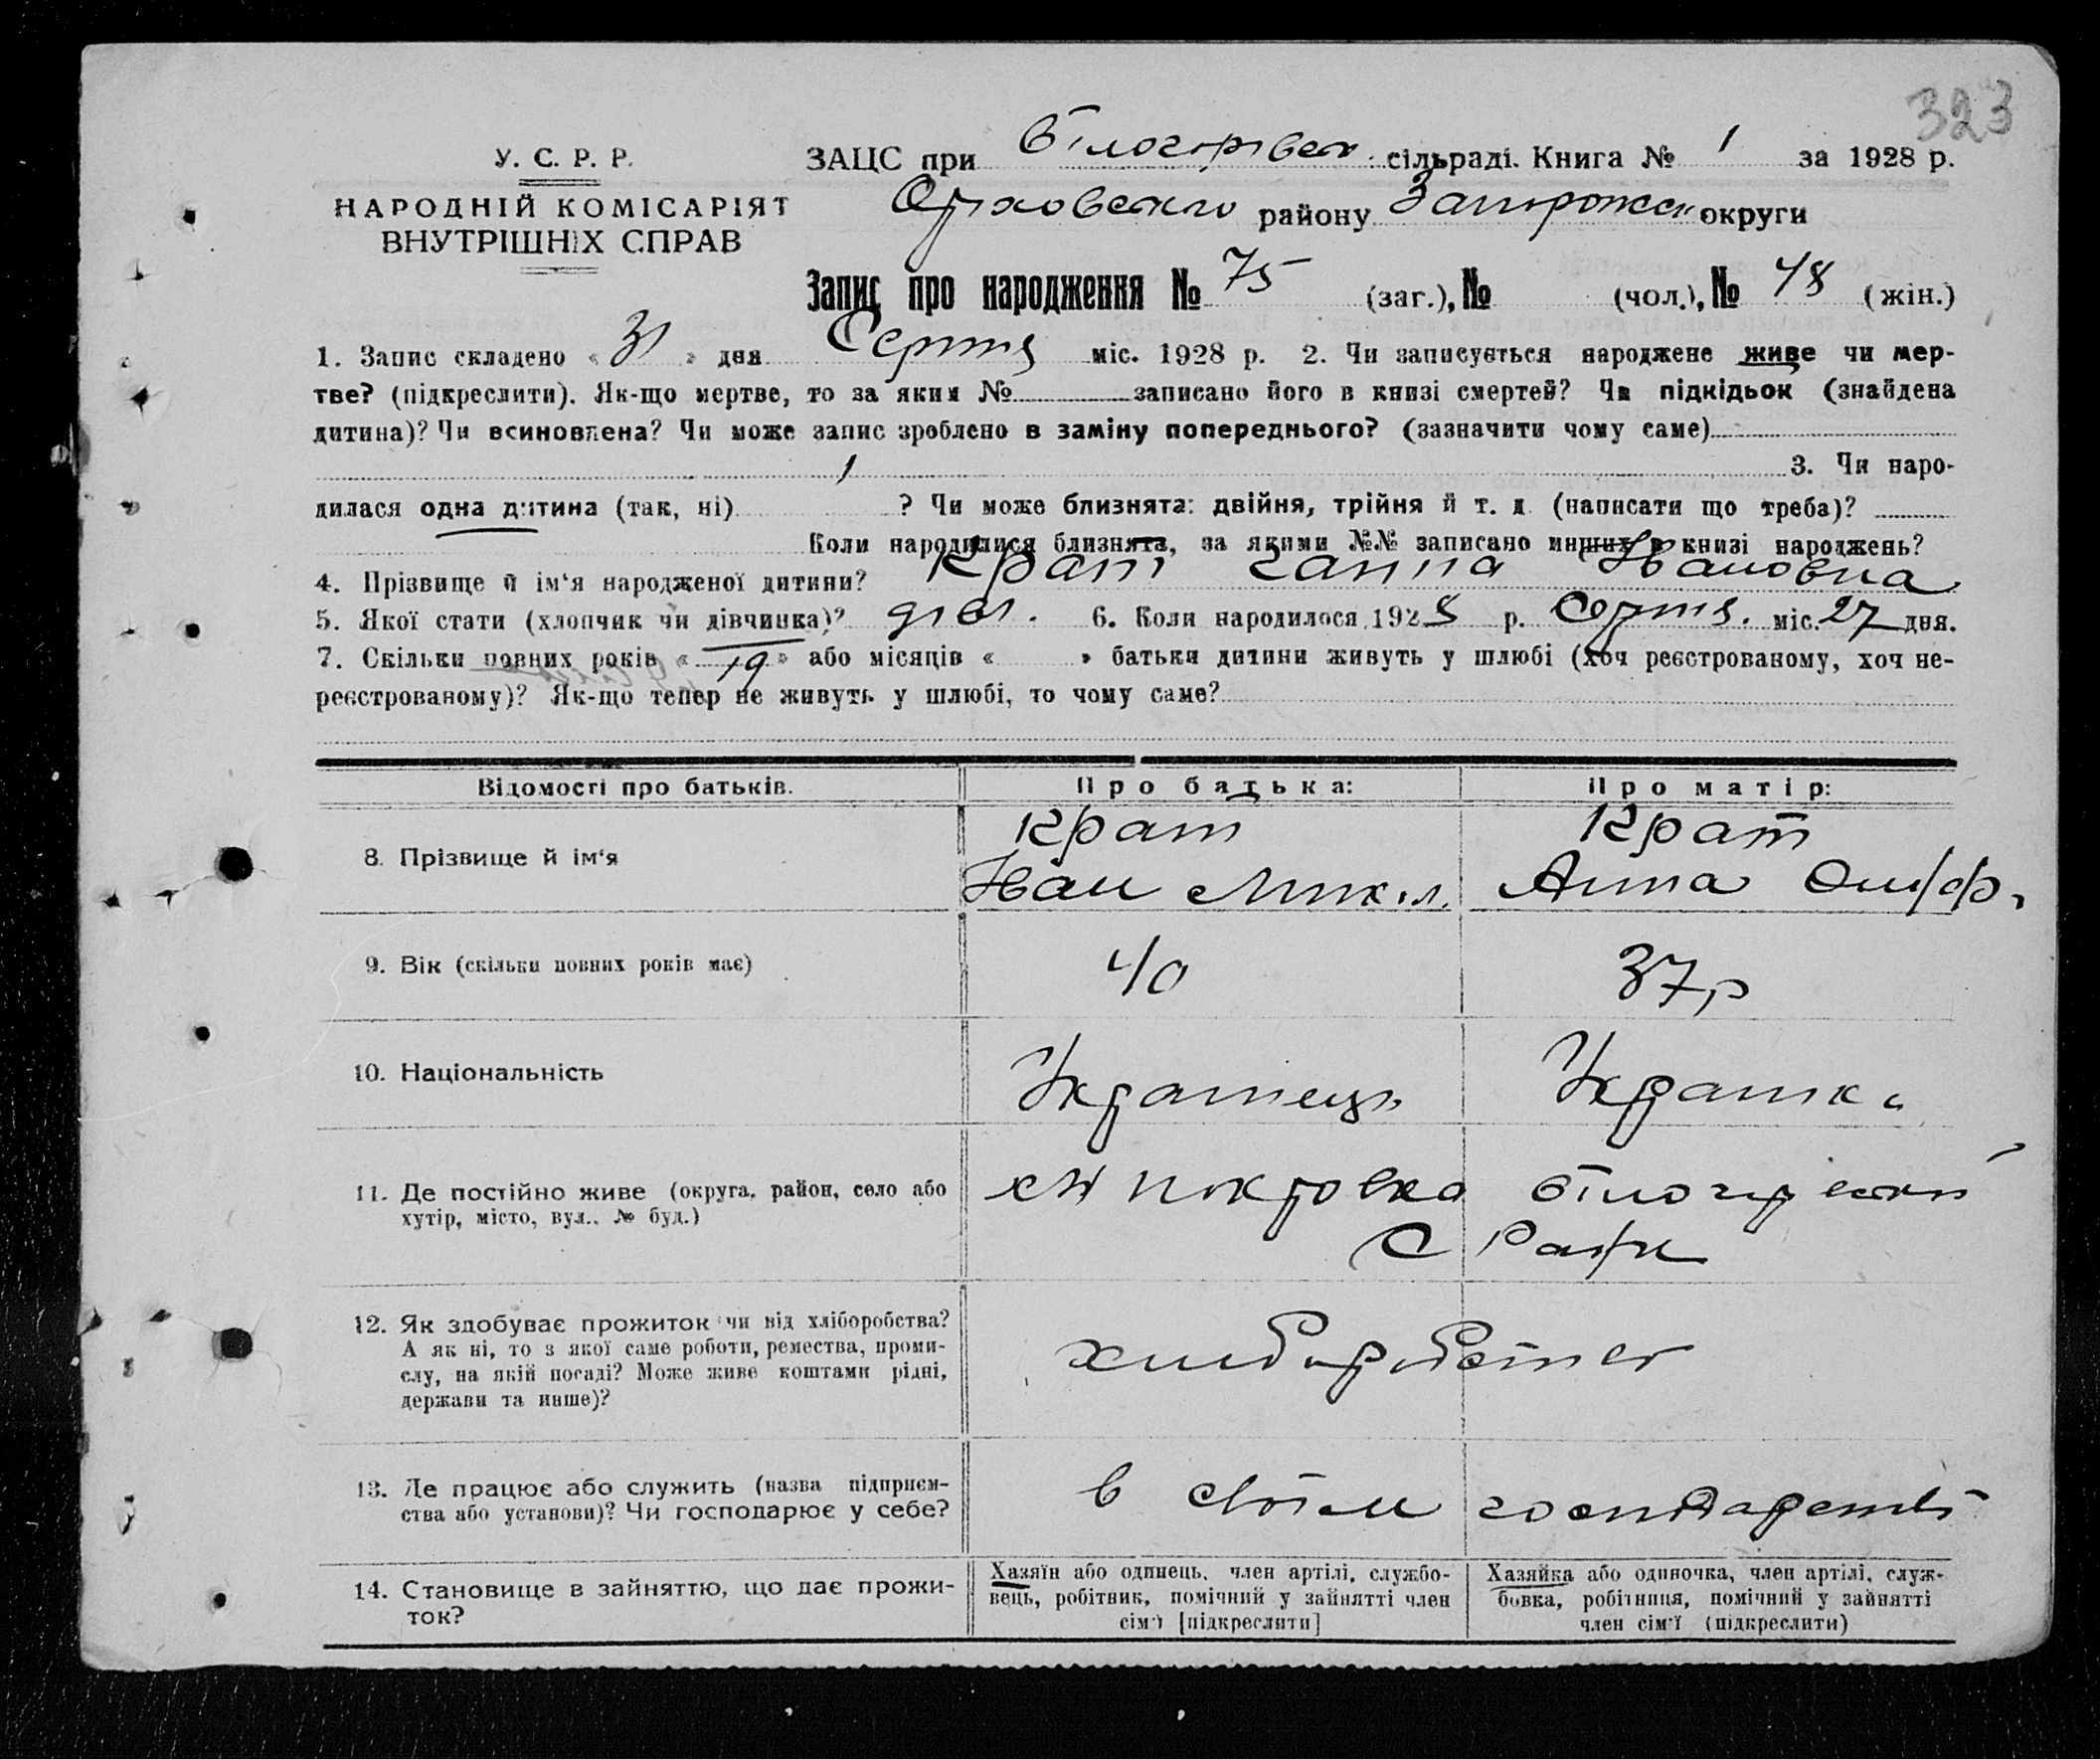 323
У. С. Р. Р.
НАРОДНІЙ КОМІСАРІЯТ
ВНУТРІШНІХ СПРАВ
ЗАЦС при Білогірвск. сільраді. Книга № 1 за 1928 р.
Оріховського району Запорожськ округи
Запис про народження № 75 (заг.), № (чол.), № 48 (жін.)
1. Запис складено « 31 » дня Серпня міс. 1928 р. 2. Чи записується народжене живе чи мер-
тве? (підкреслити). Як-що мертве, то за яким № записано його в книзі смертей? Чи підкідьок (знайдена
дитина)? Чи всиновлена? Чи може запис зроблено в заміну попереднього? (зазначити чому саме)
1 3. Чи наро-
дилася одна дитина (так, ні) ? Чи може близнята: двійня, трійня й т. д. (написати що треба)?
Коли народилися близнята, за якими №№ записано инших в книзі народжень?
4. Прізвище й ім'я народженої дитини? Крат Ганна Ивановна
5. Якої стати (хлопчик чи дівчинка)? дівч. 6. Коли народилося 1928 р. Серпня. міс. 27 дня.
7. Скільки повних років « 19 » або місяців « » батьки дитини живуть у шлюбі (хоч реєстрованому, хоч не-
реєстрованому)? Як-що тепер не живуть у шлюбі, то чому саме?
Відомості про батьків. Про батька: Про матір:
8. Прізвище й ім'я
Крат
Иван Микол.
Крат
Анна
9. Вік (скільки повних років має) 40 37 р
10. Національність Українець Українка
11. Де постійно живе (округа, район, село або
хутір, місто, вул., № буд.)
покровка Білогірський
С Ради
12. Як здобуває прожиток чи від хліборобства?
А як ні, то з якої саме роботи, ремества, проми-
слу, на якій посаді? Може живе коштами рідні,
держави та инше)?
хліборобство
13. Де працює або служить (назва підприєм-
ства або установи)? Чи господарює у себе?
в своїм господарстві
14. Становище в зайняттю, що дає прожи-
ток?
Хазяїн або одинець, член артілі, службо-
вець, робітник, помічний у зайнятті член
сім'ї [підкреслити]
Хазяйка або одиночка, член артілі, служ-
бовка, робітниця, помічний у зайнятті
член сім'ї (підкреслити)